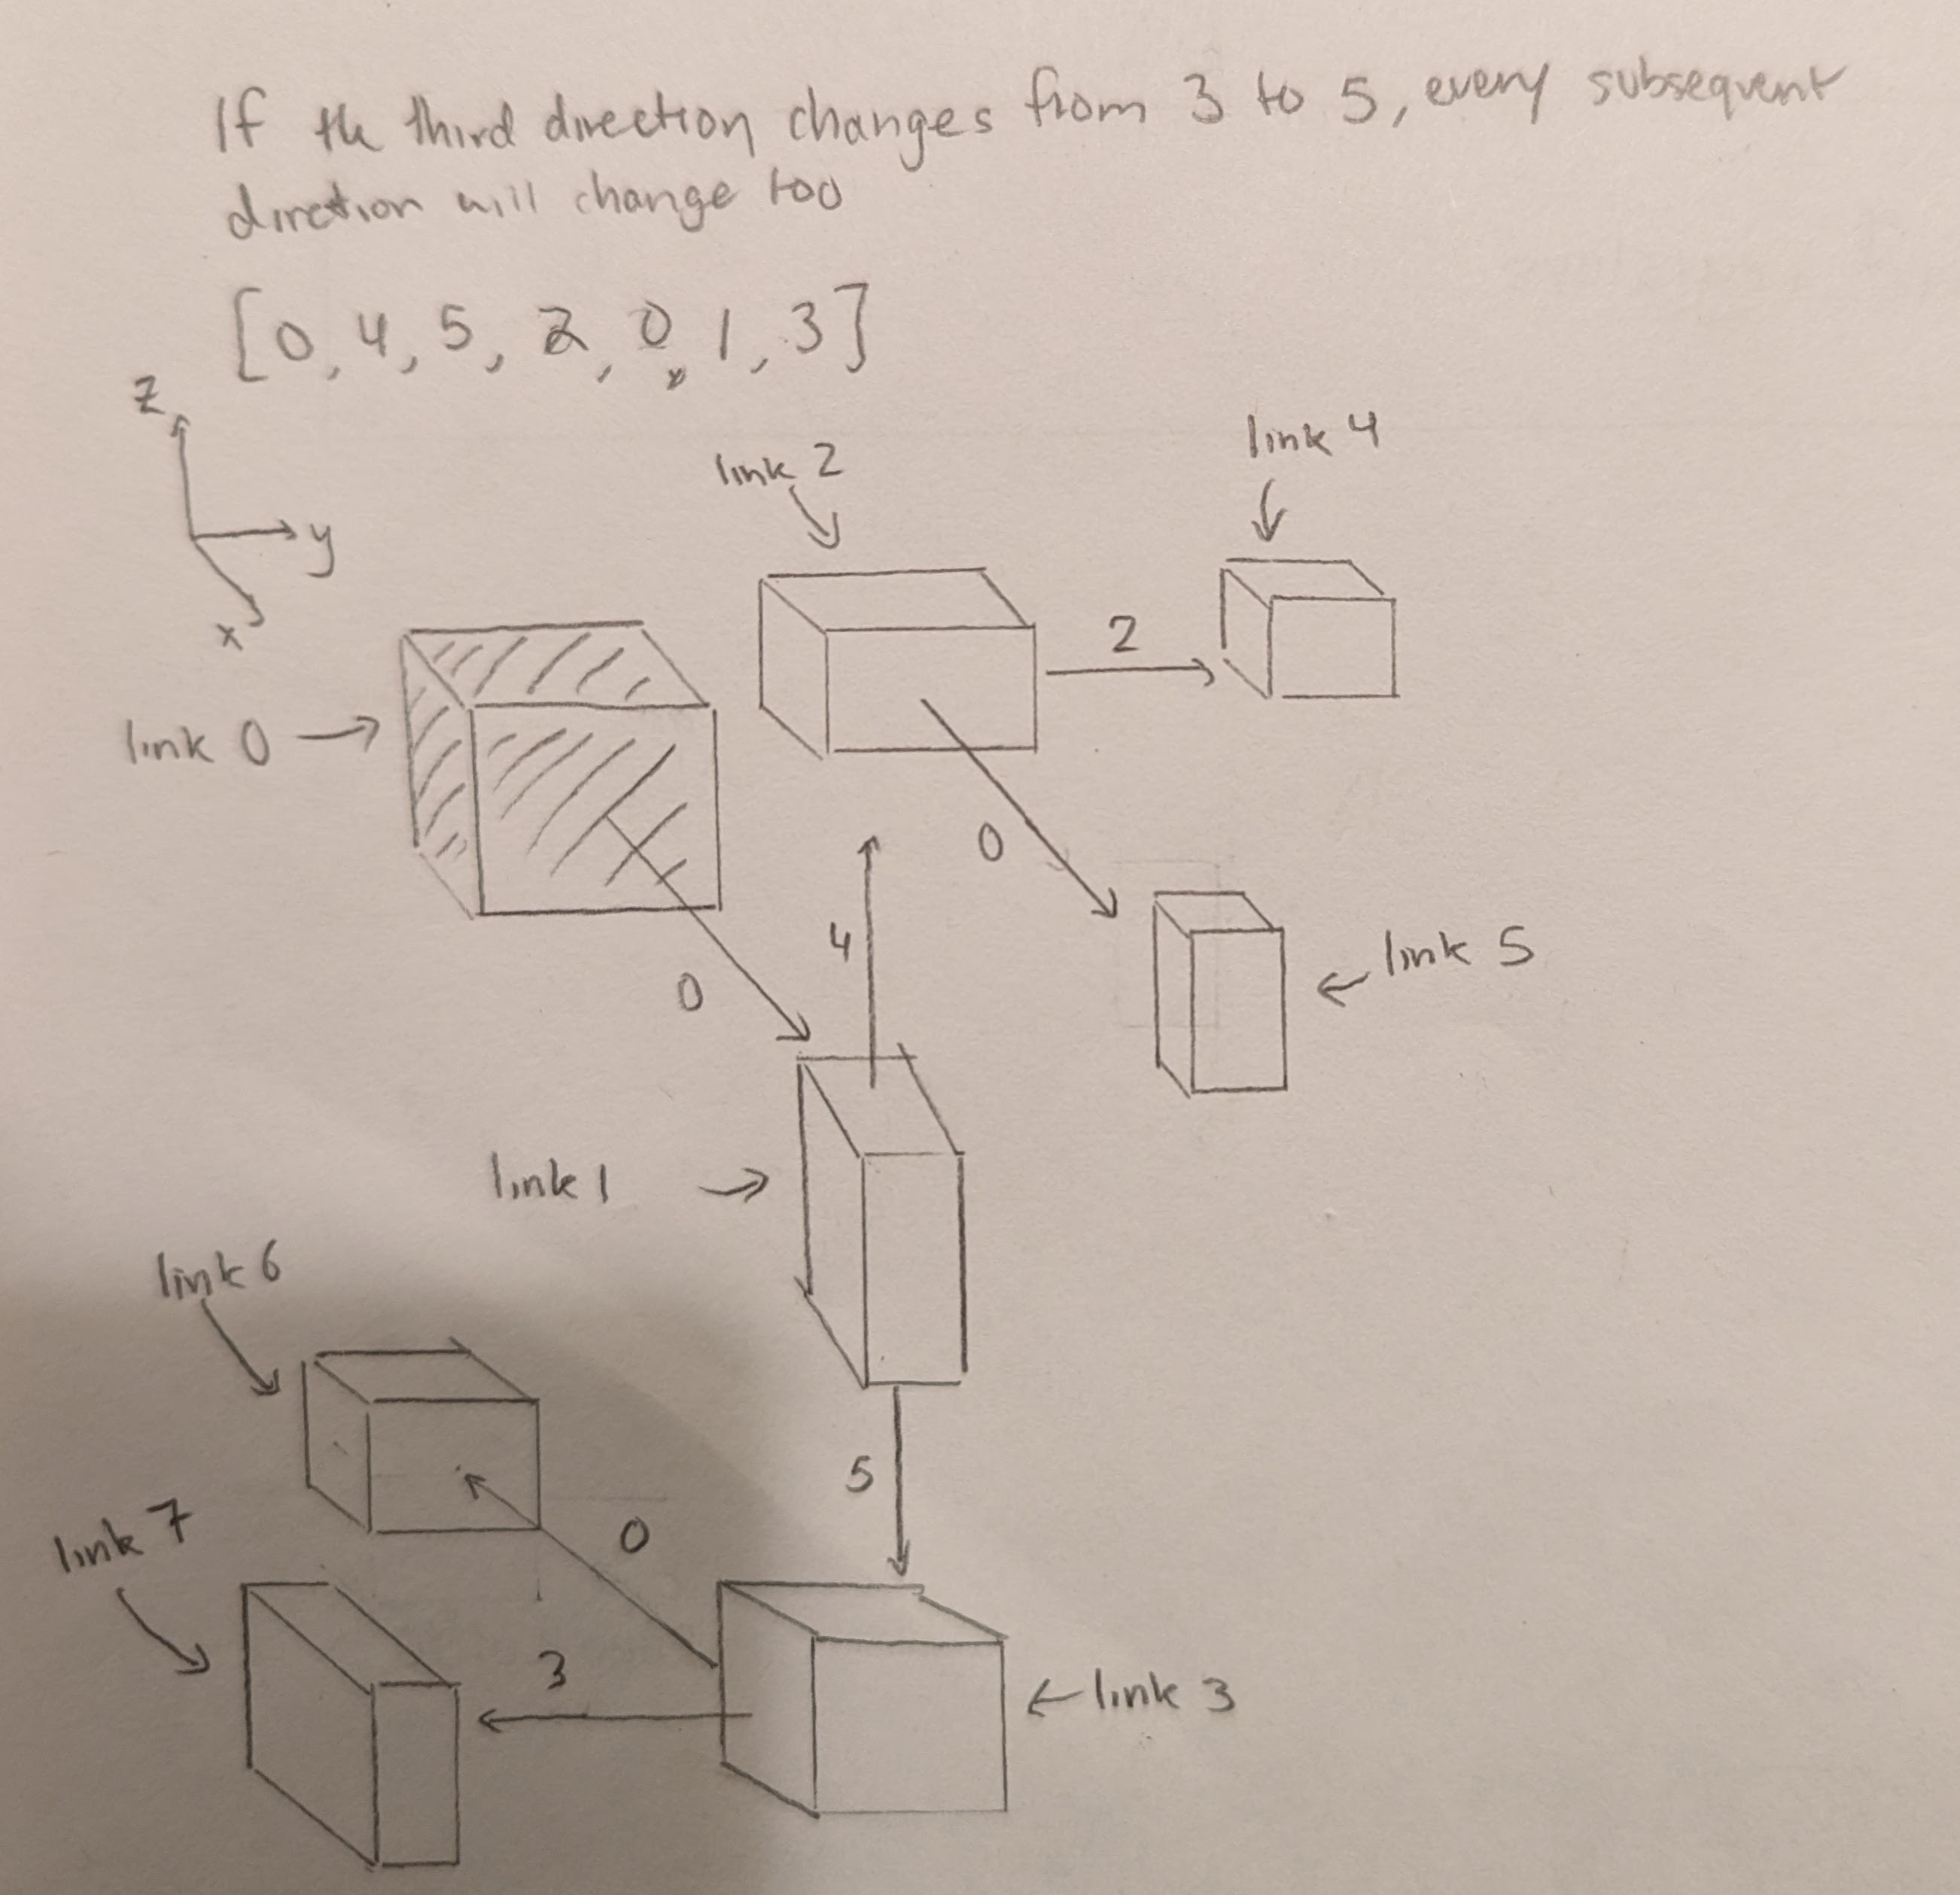 If the third direction changes from 3 to 5, every subsequent
direction will change too
[0, 4, 5, 2, 0, 1, 3]
z
y
x
link 2
link 4
2
link 0
0
4
link 5
0
link 1
link 6
5
link 7
0
3
link 3